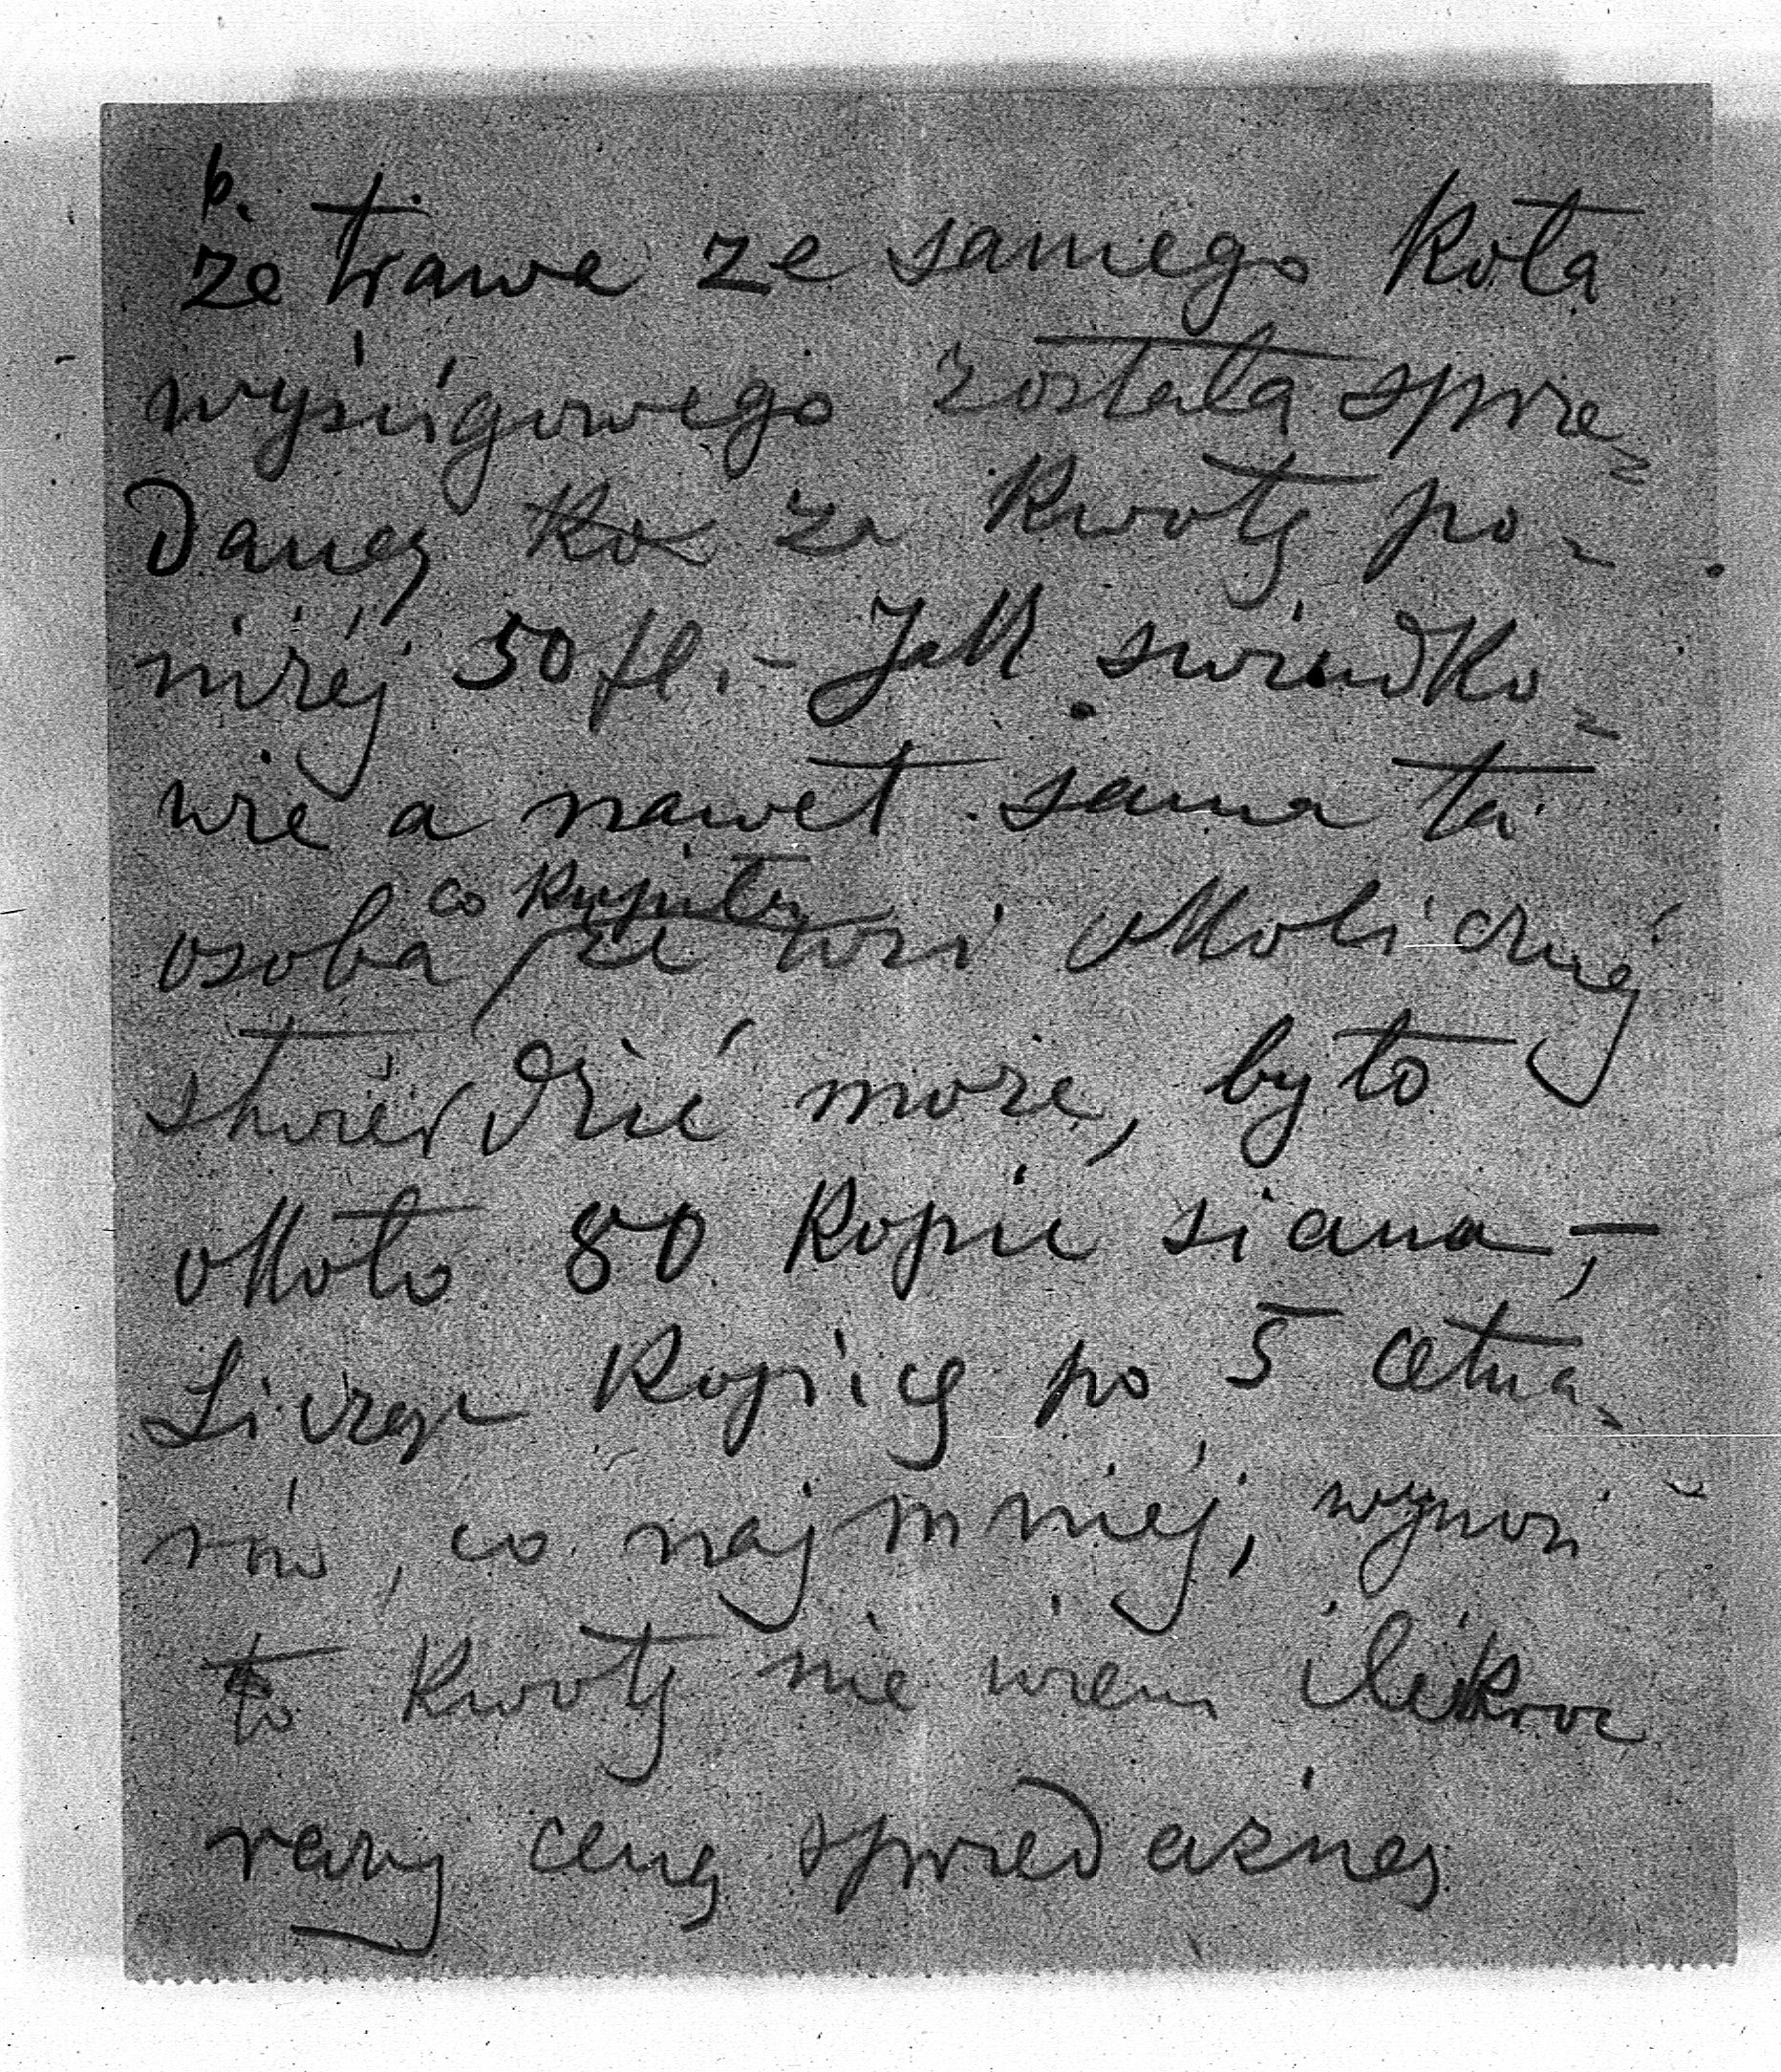 b.
że trawa ze samego koła
wyścigowego została sprze-
daną za kwotę po-
niżéj 50 fl. - Jak świadko-
wie a nawet sama ta
co kupiła
osoba ze wsi okolicznéj
stwierdzić może, było
około 80 kopic siana, -
Licząc kopicę po 5 cetna-
rów, co najmniéj, wynosi
to kwotę nie wiem ilekroć
razy cenę sprzedażną